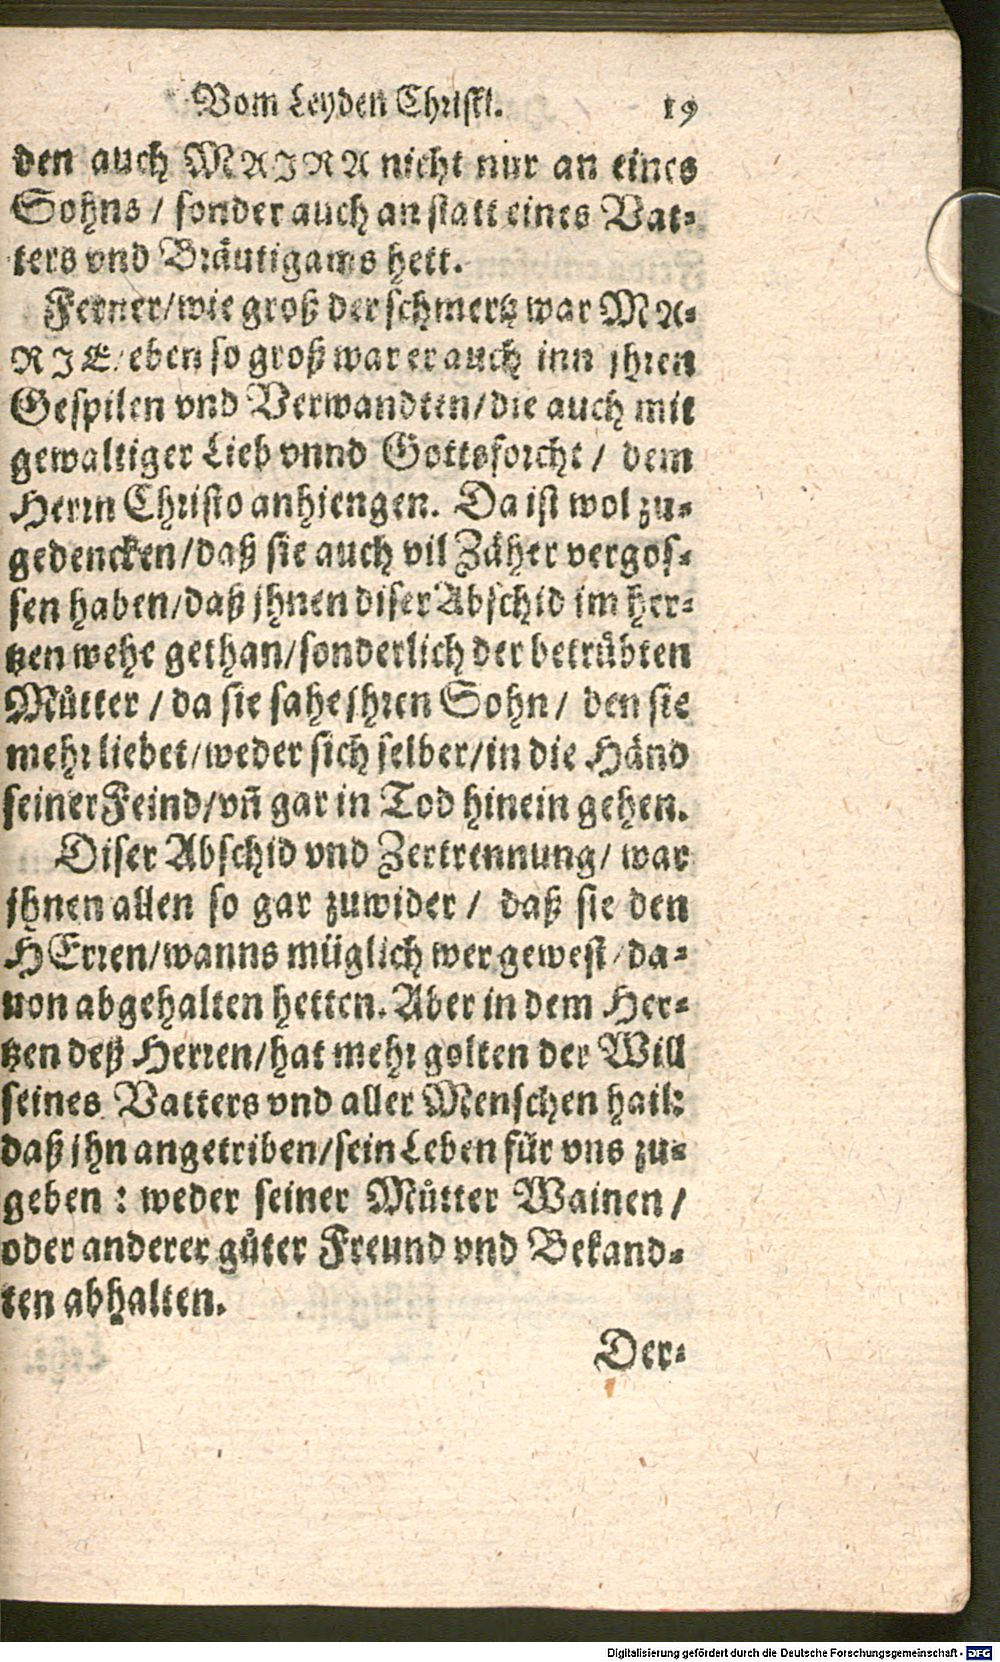 Vom Leyden Christi. 19
den auch MAJRA nicht nur an eines
Sohns / sonder auch an statt eines Vat-
ters vnd Bräutigams hett.
Ferner/wie groß der schmertz war MA-
RIE/eben so groß war er auch inn jhren
Gespilen vnd Verwandten/die auch mit
gewaltiger Lieb vnnd Gottsforcht / dem
Herrn Christo anhiengen. Da ist wol zu-
gedencken/daß sie auch vil Zäher vergos-
sen haben/daß jhnen diser Abschid im her-
tzen wehe gethan/sonderlich der betrübten
Můtter / da sie sahe jhren Sohn / den sie
mehr liebet/weder sich selber/in die Händ
seiner Feind/vñ gar in Tod hinein gehen.
Diser Abschid vnd Zertrennung/ war
jhnen allen so gar zuwider / daß sie den
HErren/wanns müglich wer gewest/da-
uon abgehalten hetten. Aber in dem Her-
tzen deß Herren/hat mehr golten der Will
seines Vatters vnd aller Menschen hail:
daß jhn angetriben/sein Leben für vns zu-
geben : weder seiner Můtter Wainen /
oder anderer gůter Freund vnd Bekand-
ten abhalten.
Der-
Digitalisierung gefördert durch die Deutsche Forschungsgemeinschaft - DFG